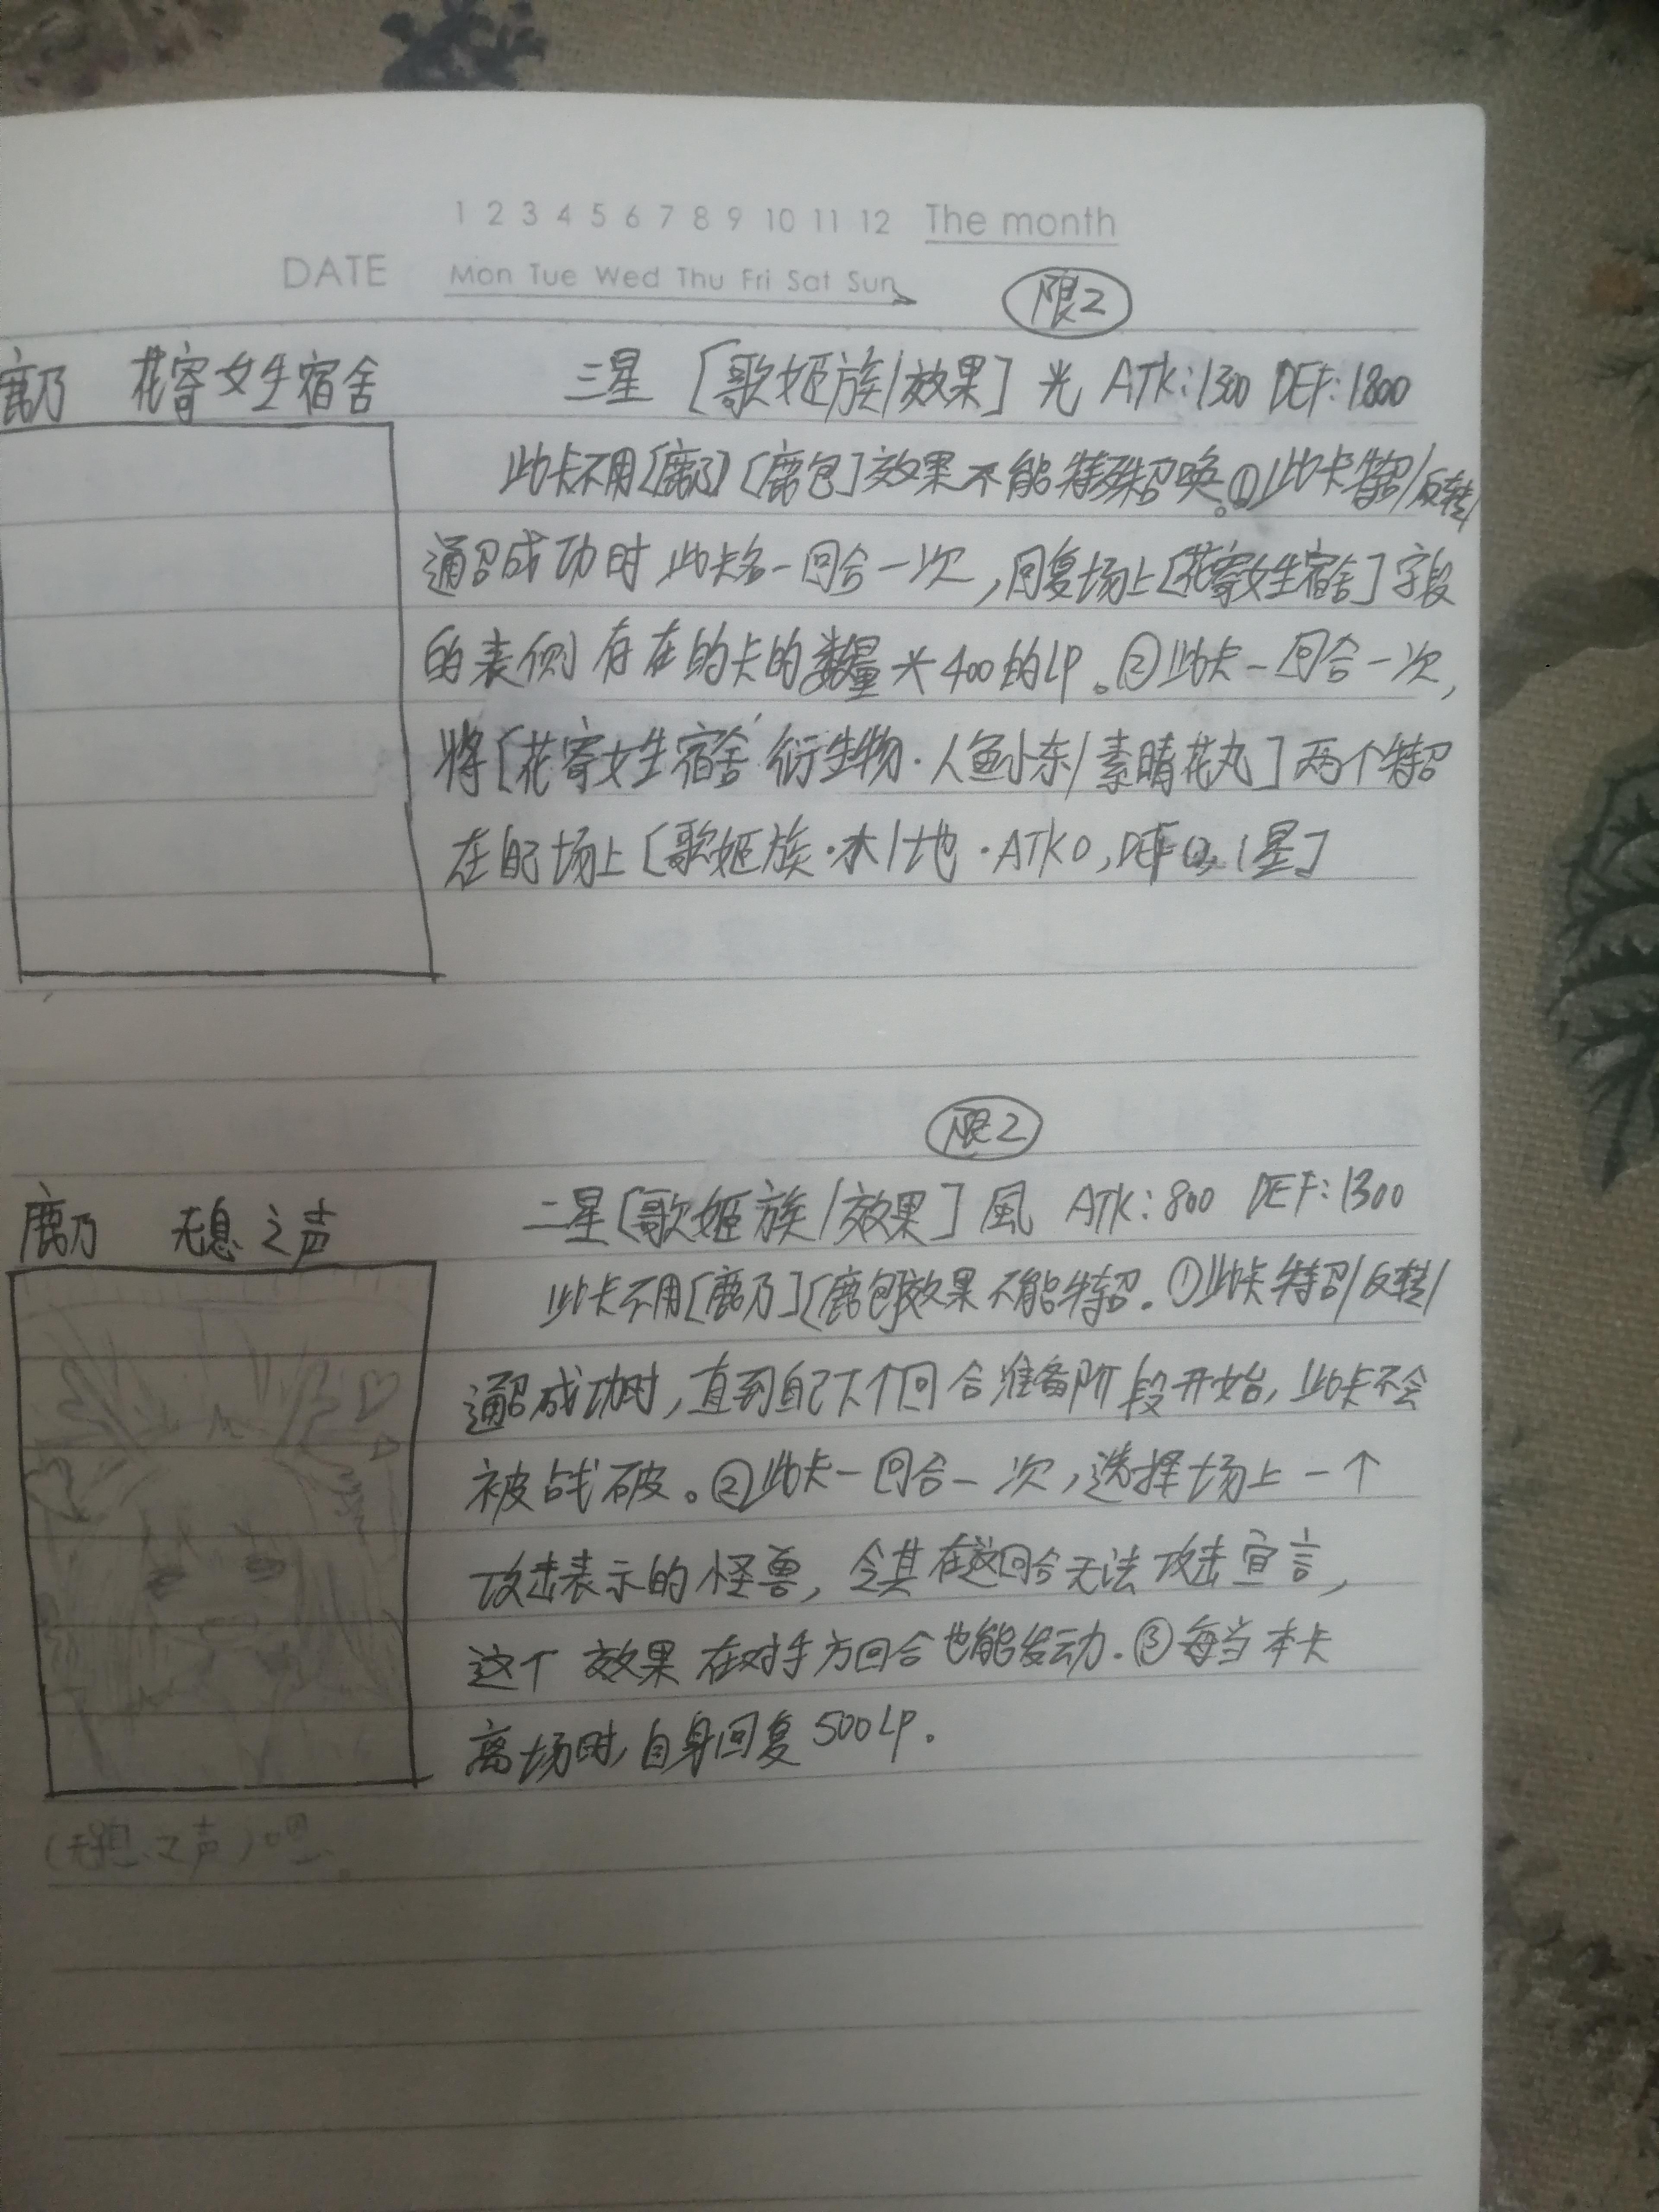 1 2 3 4 5 6 7 8 9 10 11 12 The month
DATE Mon Tue Wed Thu Fri Sat Sun
限2
鹿乃 花寄女生宿舍 三星 [歌姬族/效果] 光 ATK:1300 DEF:1800
此卡不用[鹿乃][鹿包]效果不能特殊召唤。①此卡特招/反转/
通召成功时 此卡名一回合一次,回复场上[花寄女生宿舍]字段
的表侧存在的卡的数量*400的LP。②此卡一回合一次,
将[花寄女生宿舍 衍生物·人鱼小东/素晴花丸]两个特招
在自己场上[歌姬族·水/地·ATK0,DEF0,1星]
限2
鹿乃 无息之声 二星[歌姬族/效果] 風 ATK:800 DEF:1300
此卡不用[鹿乃][鹿包]效果不能特招.①此卡特招/反转/
通召成功时,直到自己下个回合准备阶段开始,此卡不会
被战破。②此卡一回合一次,选择场上一个
攻击表示的怪兽,令其在这回合无法攻击宣言,
这个效果在对手方回合也能发动.③每当本卡
离场时,自身回复500LP.
(无息之声)嗯。